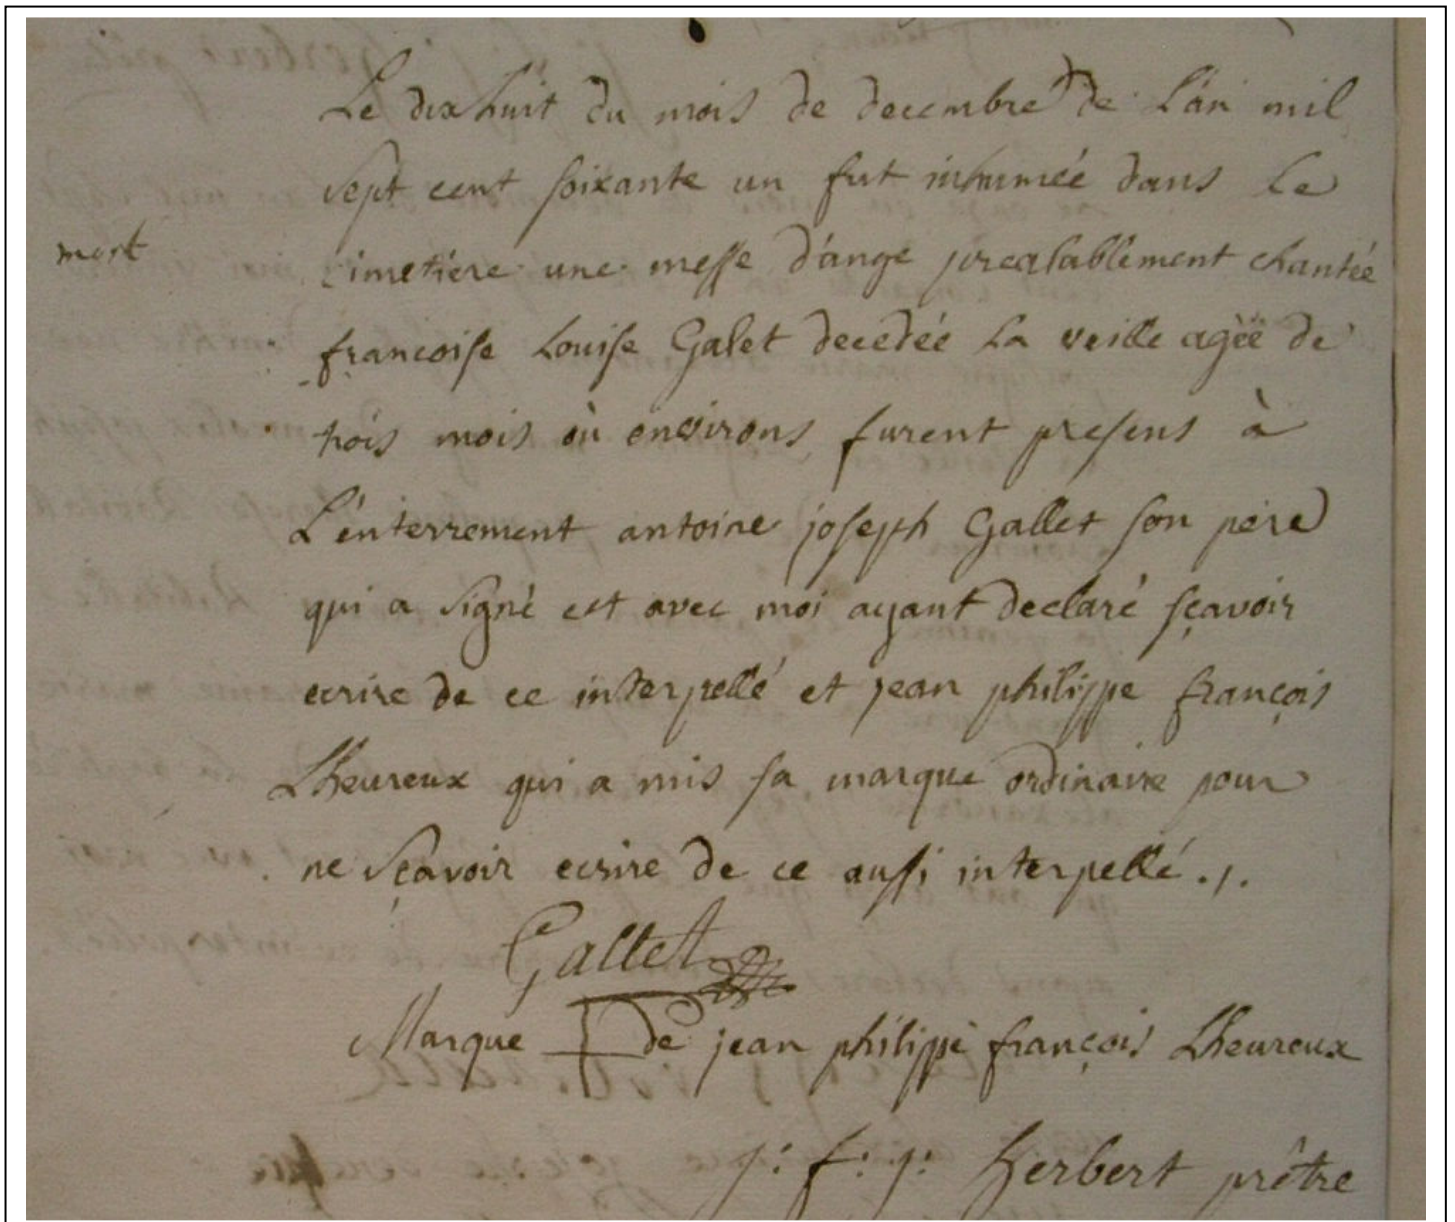 Le dixhuit du mois de decembre de L'an mil
sept cent soixante un fut inhumée dans Le
mort
cimetiere une messe d'ange prealablement chantée
francoise Louise Galet decedée La veille agëe de
trois mois où environs furent presens à
L'enterrement antoine joseph Gallet son pere
qui a signé est avec moi ayant declaré sçavoir
ecrire de ce interpellé et jean philippe françois
Lheureux qui a mis sa marque ordinaire pour
ne sçavoir ecrire de ce aussi interpellé . / .
Gallet
Marque de jean philippe françois Lheureux
j : f : j : herbert prêtre